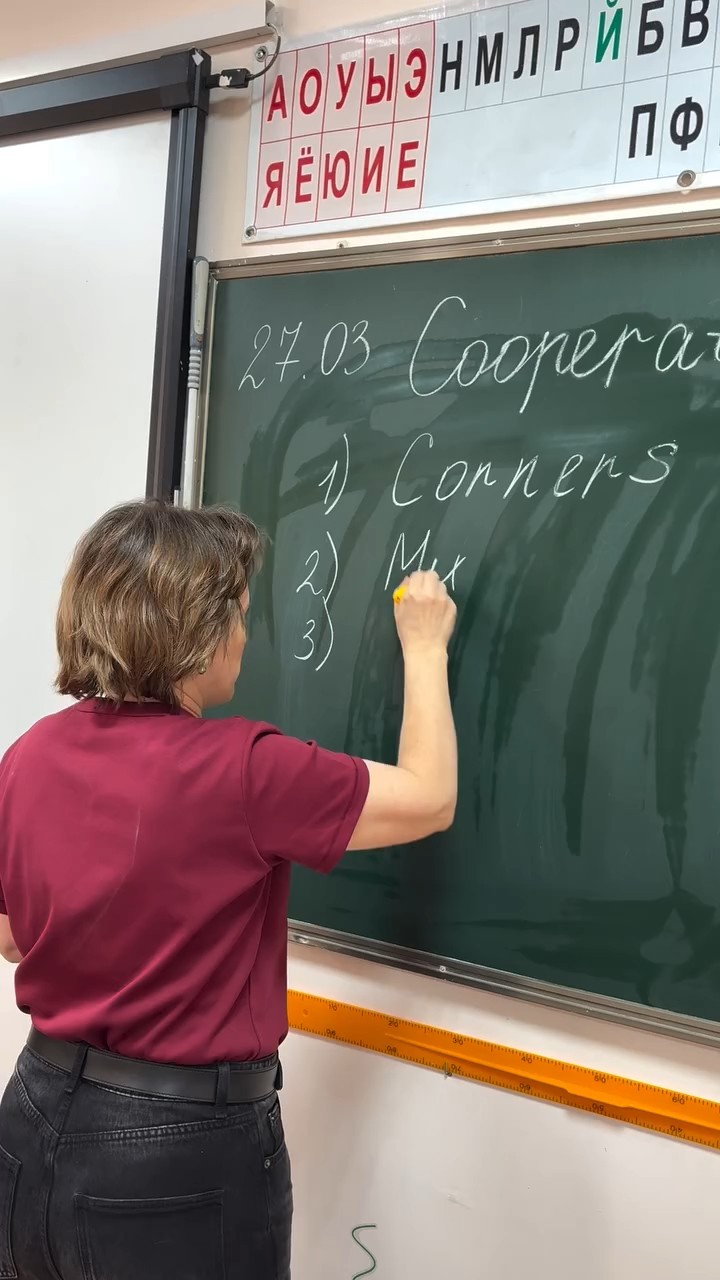 А О У Ы Э Н М Л Р Й Б В
Я Ё Ю И Е П Ф
27.03 Coopera
1) Corners
2) Mix
3)